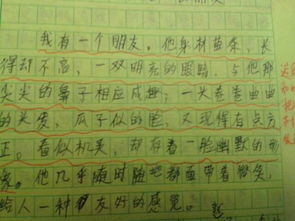 我有一个朋友。他身材苗条，长
得却不高，一双明亮的眼睛，与他那
尖尖的鼻子相应成趣，一头卷卷曲曲
的米发，瓜子似的脸，又现得有点方
正。看似机灵，却存着一脸幽默的形
象。他几乎随时随地都面带着微笑，
给人一种友好的感觉。